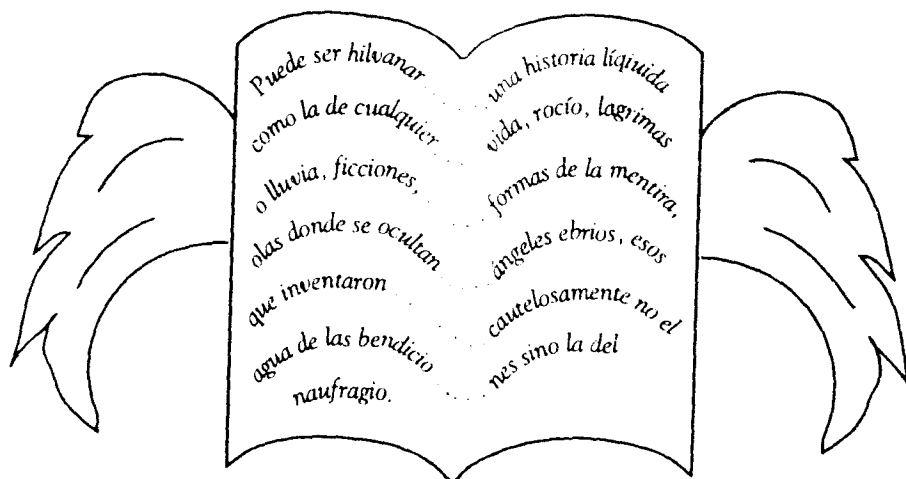 Puede ser hilvanar .... una historia líqiuida
como la de cualquier .... vida, rocío, lagrimas
o lluvia, ficciones, .... formas de la mentira,
olas donde se ocultan .... ángeles ebrios, esos
que inventaron .... cautelosamente no el
agua de las bendicio .... nes sino la del
naufragio.